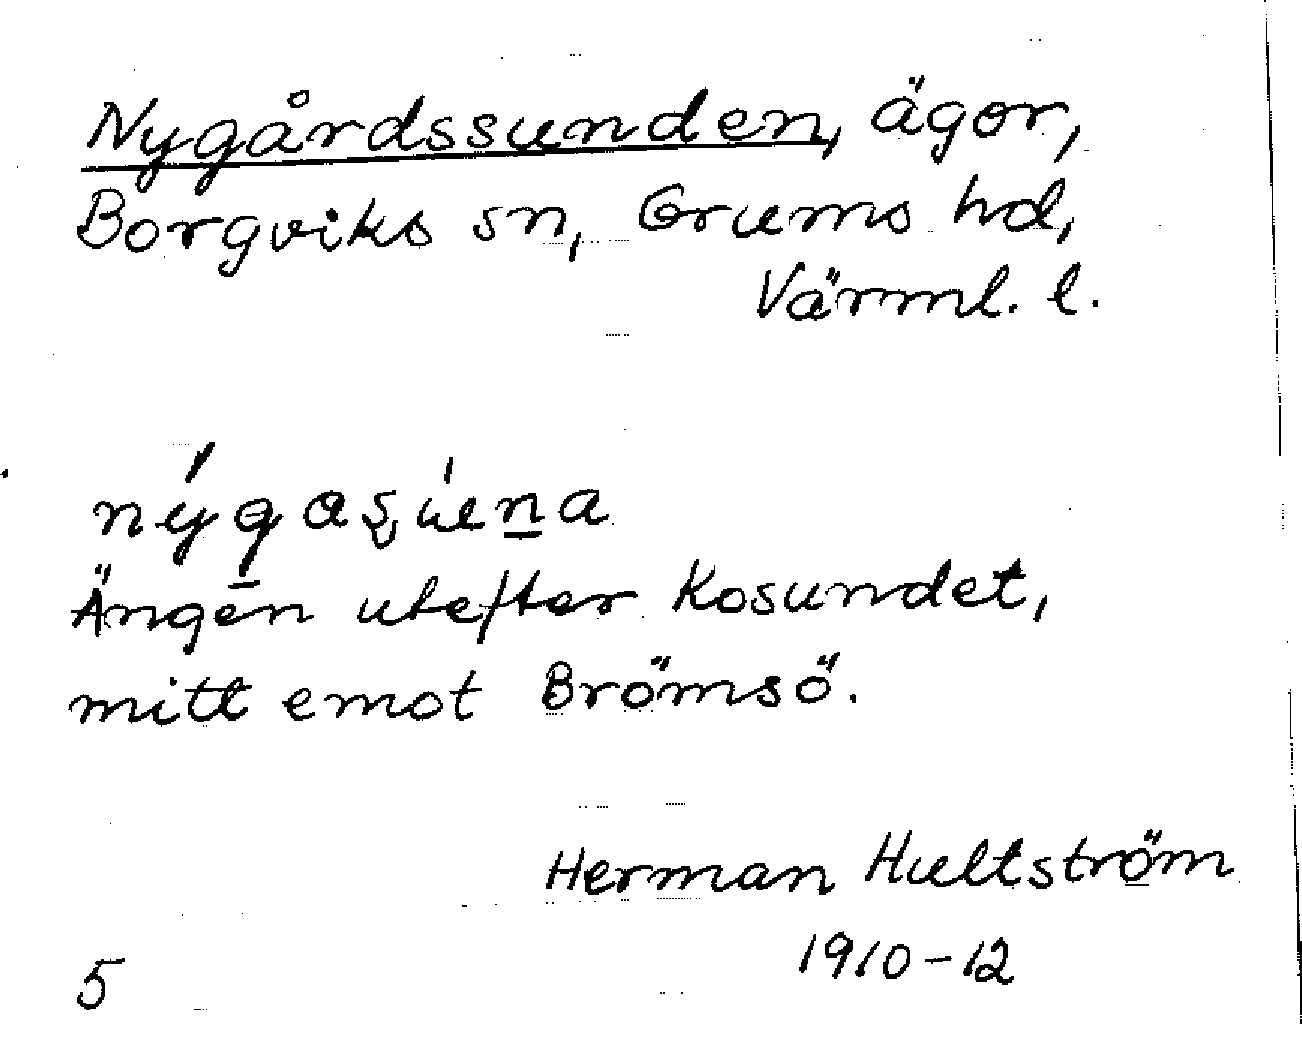 Nygårdssunden, ägor,
Borgviks sn, Grums hd,
Värml. l.
nýgasúena
Ängen utefter Kosundet,
mitt emot Brömsö.
Herman Hultström
1910-12
5